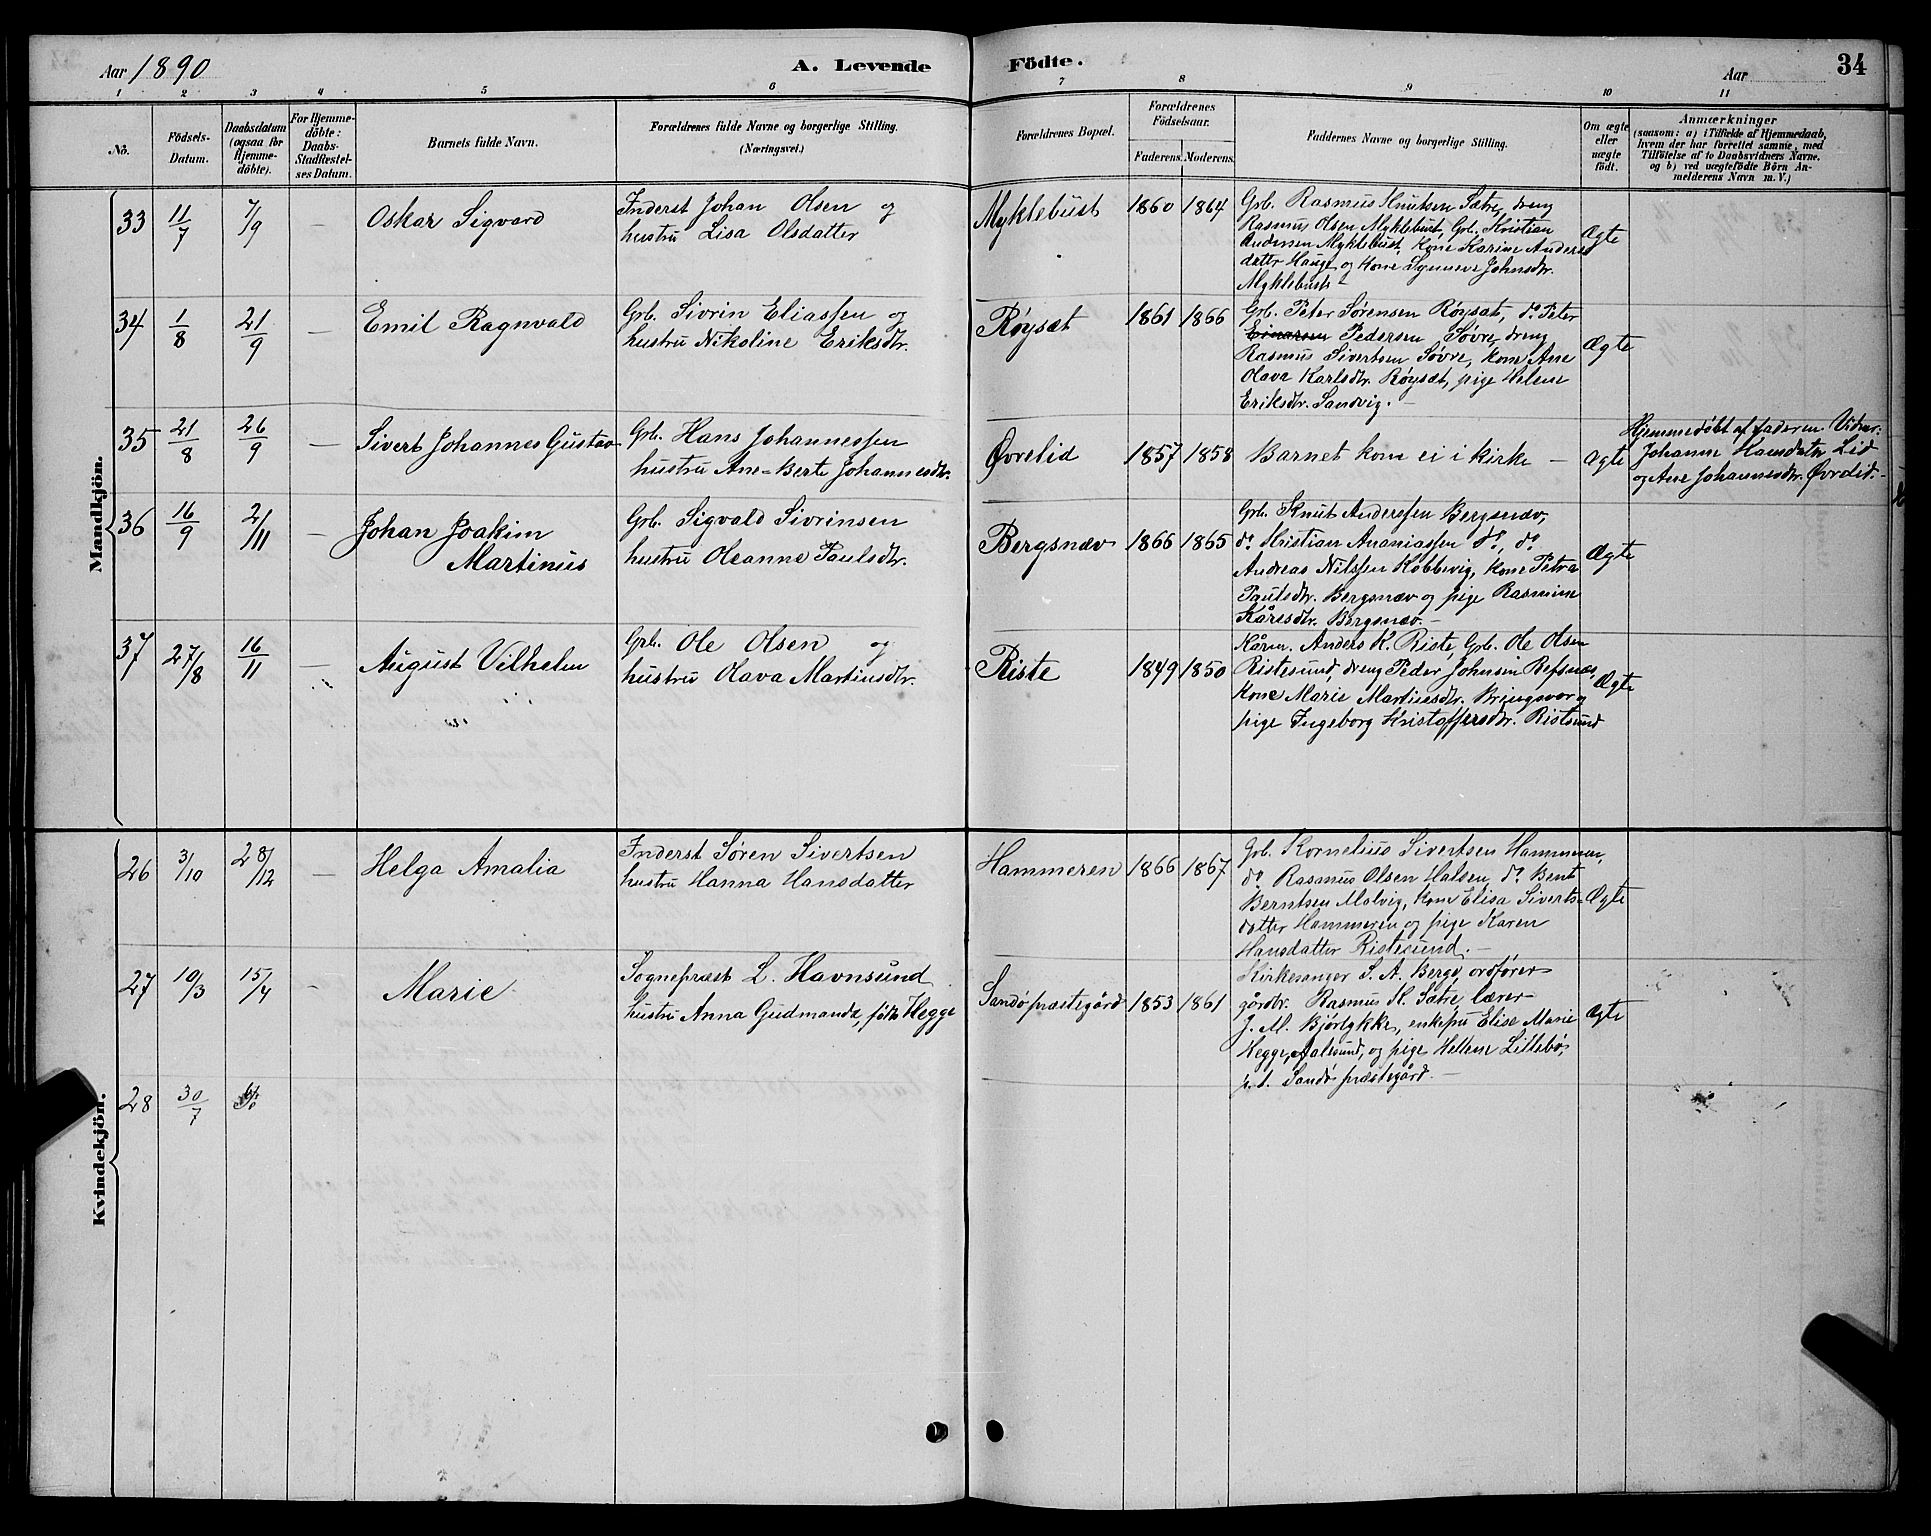 Aar 1890
A. Levende Födte.
Aar
34
1 2 3 4 5 6 7 8 9 10 11
No.
Födsels-
Datum.
Daabsdatum
(ogsaa for
Hjemme-
döbte).
For Hjemme-
döbte:
Daabs-
Stadfestel-
ses Datum.
Barnets fulde Navn.
Forældrenes fulde Navne og borgerlige Stilling.
(Næringsvei.)
Forældrenes Bopæl.
Forældrenes
Födselsaar.
Faderens. Moderens.
Faddernes Navne og borgerlige Stilling.
Om ægte
eller
uægte
födt.
Anmærkninger
(saasom: a) i Tilfælde af Hjemmedaab,
hvem der har forrettet samme, med
Tilföielse af to Daabsvidners Navne.
og b) ved uægtefödte Börn An-
melderens Navn m. V.)
Mandkjön.
33 11/7 7/9 – Oskar Sigvard
Inderst Johan Olsen og
hustru Lisa Olsdatter
Myklebust 1860 1864
Grb. Rasmus Knutsen Sætre, dreng
Rasmus Olsen Myklebust, Grb. Kristian
Andersen Myklebust, kone Karine Anders
datter Hauge og kone Synneve Johnsdtr.
Myklebust
Ægte
34 1/8 21/9 – Emil Ragnvald
Grb. Sivrin Eliassen og
hustru Nikoline Eriksdtr.
Røysæt 1861 1866
Grb. Peter Sørensen Røysæt, do Peter
Einarsen Pedersen Søvre, dreng
Rasmus Sivertsen Søvre, kone Ane
Olava Karlsdtr. Røysæt, pige Helene
Eriksdtr. Sandvig. –
Ægte
35 21/8 26/9 – Sivert Johannes Gustav
Grb. Hans Johannessen
hustru Ane-Berte Johannesdtr.
Øvrelid 1857 1858 Barnet kom ei i kirke – Ægte
Hjemmedøbt af faderen. Vidner:
Johanne Hansdatr Lid
og Ane Johannesdtr. Øvrelid. –
36 16/9 2/11 – Johan Joakim
Martinus
Grb. Sigvald Sivrinsen
hustru Oleanne Paulsdtr.
Bergsnæv 1866 1865
Grb. Knut Anderssen Bergsnæv,
do Kristian Ananiassen do, do
Andreas Nilssen Kobbevig, kone Petra
Paulsdtr. Bergsnæv og pige Rasmine
Kåresdtr. Bergsnæv. –
Ægte
37 27/8 16/11 – August Vilhelm
Grb. Ole Olsen og
hustru Olava Martinsdtr.
Riste 1849 1850
Kårm. Anders K. Riste, Grb. Ole Olsen
Ristesund, dreng Peder Johnsen Refsnæs,
kone Marie Martinesdtr. Bringsvor og
pige Ingeborg Kristoffersdtr. Ristsund
Ægte
Kvindekjön.
26 3/10 28/12 – Helga Amalia
Inderst Søren Sivertsen
hustru Hanna Hansdatter
Hammeren 1866 1867
Grb. Kornelius Sivertsen Hammeren,
do Rasmus Olsen Halsen, do Bent
Berntsen Molvig, kone Elisa Siverts-
datter Hammeren og pige Karen
Hansdatter Ristesund. –
Ægte
27 10/3 15/4 – Marie
Sognepræst L. Havnsund
hustru Anna Gudmanda, født Hegge
Sandø præstegård 1853 1861
Kirkesanger S. A. Berge, ordfører
gårdbr. Rasmus K. Sætre, lærer
J. M. Bjørlykke, enkefru Elise Marie
Hegge, Aalesund, og pige Hellene Littebø,
p. t. Sandø præstegård. –
Ægte
28 30/7